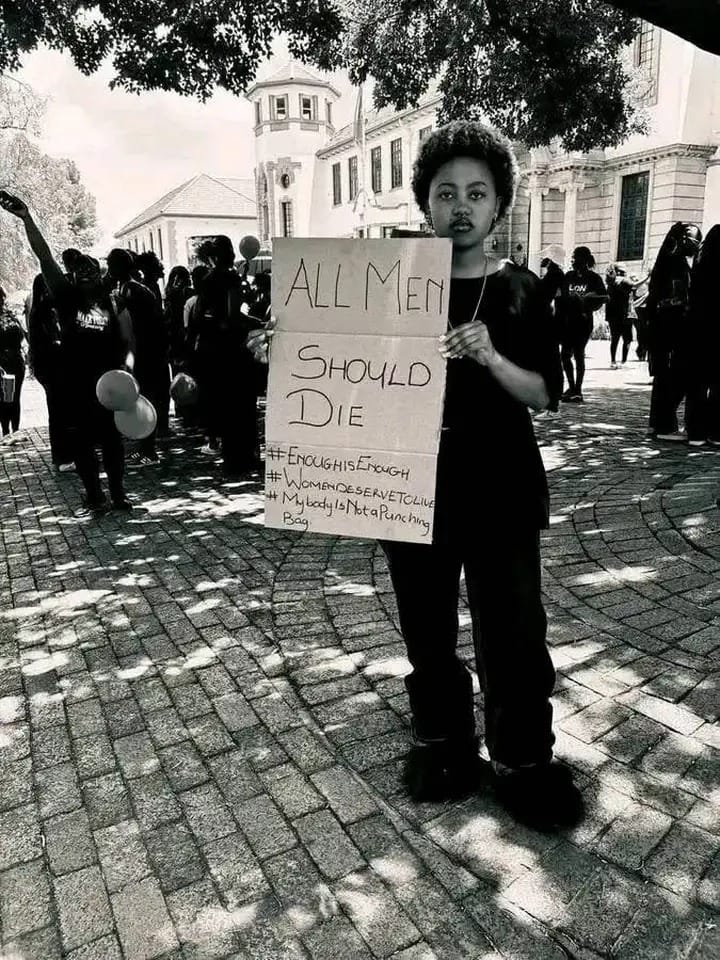 ALL MEN
SHOULD
DIE
#ENOUGHISENOUGH
#WOMENDESERVETOLIVE
#MybodyIsNotaPunching
Bag